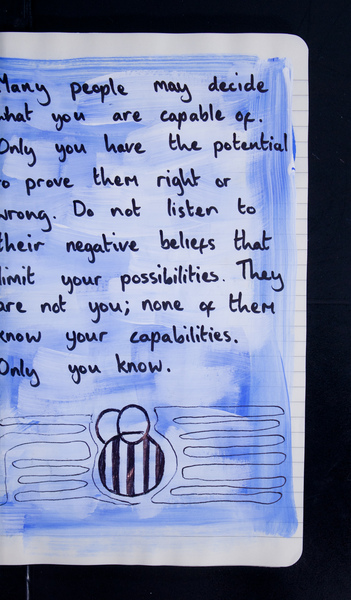 Many people may decide
what you are capable of.
Only you have the potential
to prove them right or
wrong. Do not listen to
their negative beliefs that
limit your possibilities. They
are not you; none of them
know your capabilities.
Only you know.